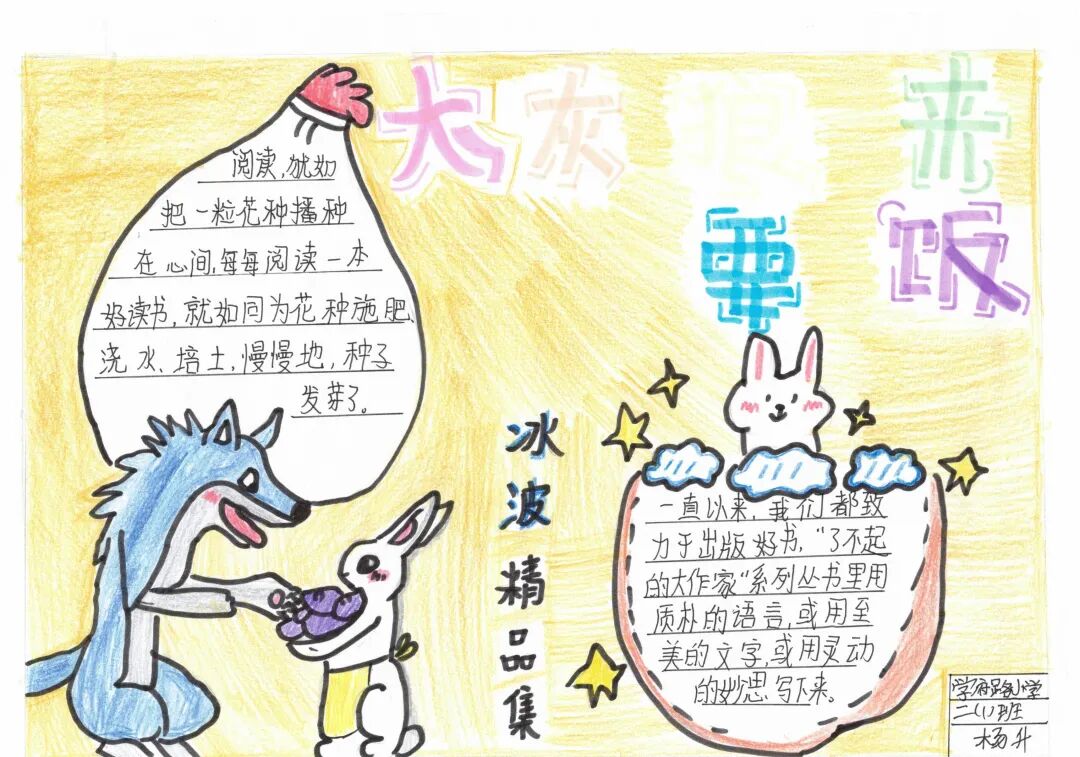 大灰狼来
要饭
阅读,犹如
把一粒花种播种
在心间,每每阅读一本
好读书,就如同为花种施肥、
浇水、培土,慢慢地,种子
发芽了。
冰波精品集
一直以来,我们都致
力于出版好书,“了不起
的大作家”系列丛书里用
质朴的语言,或用至
美的文字,或用灵动
的妙思写下来。
学府路小学
二(1)班
杨升